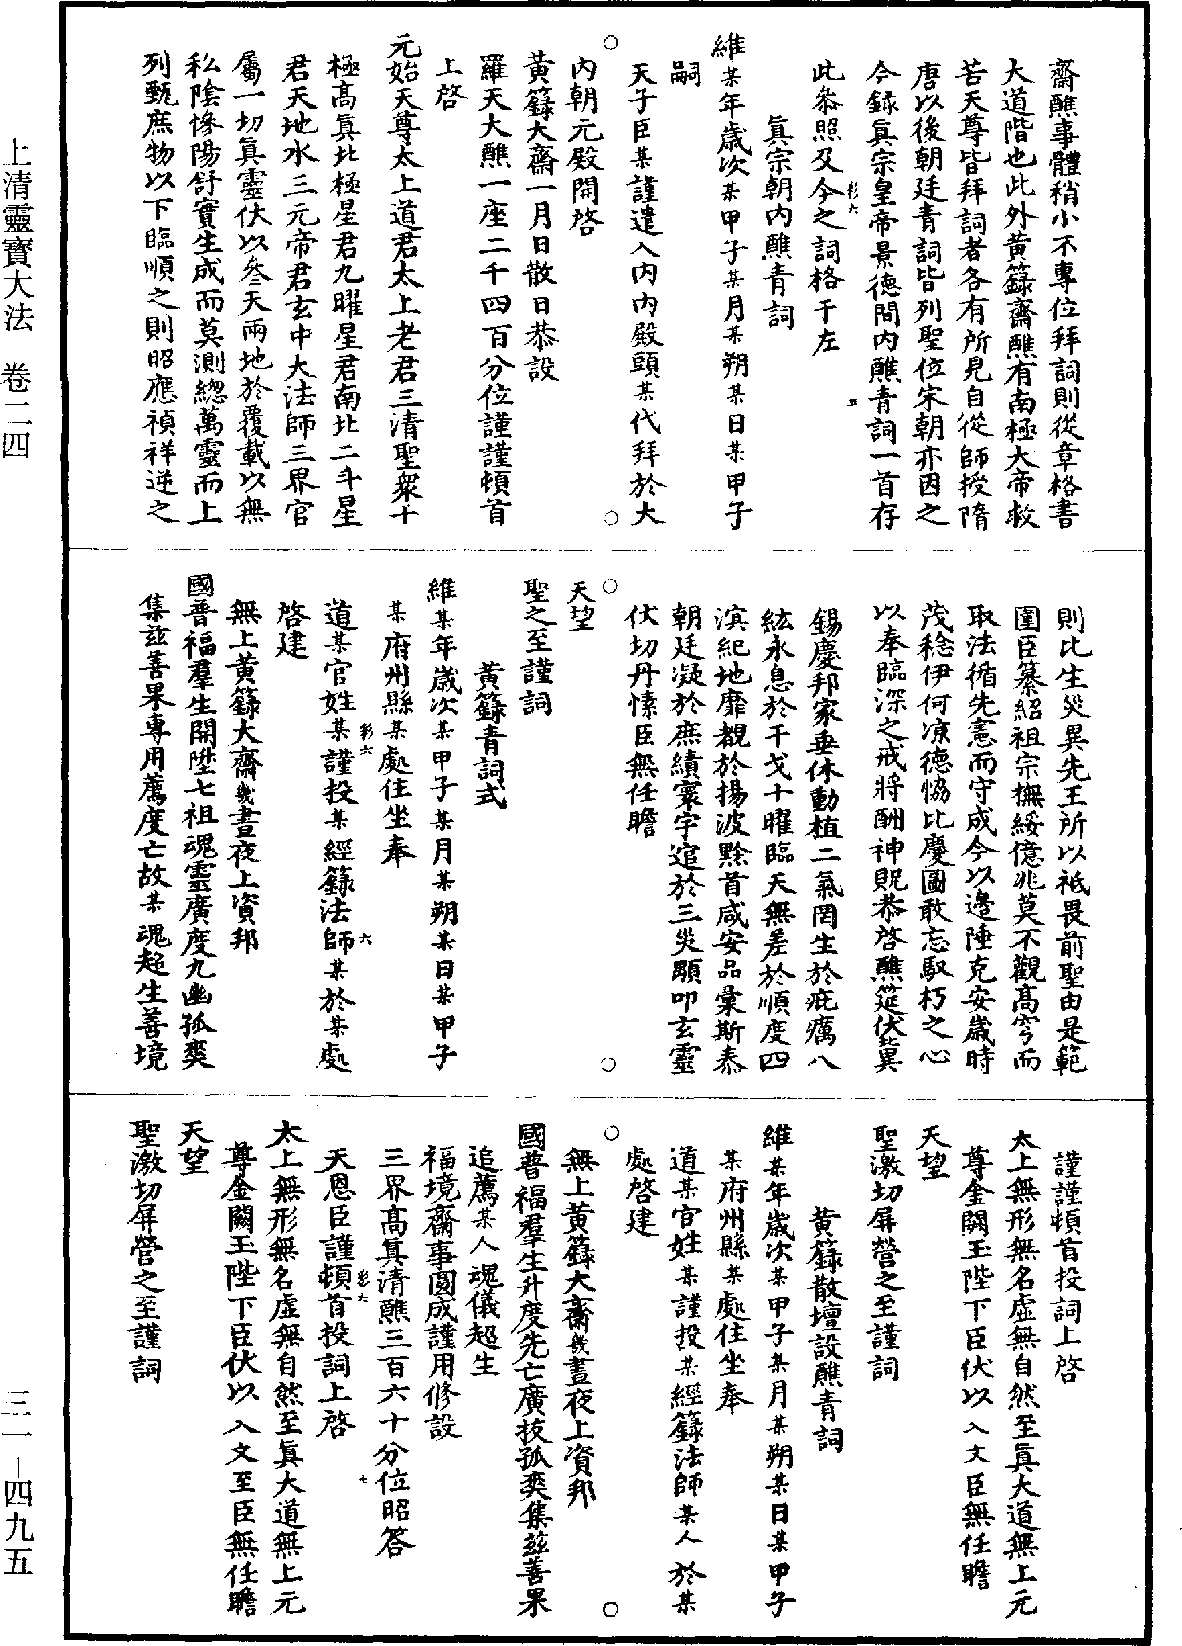 上清靈寶大法　卷二四
三一－四九五
齋醮事體稍小不專位拜詞則從章格書
大道階也此外黄籙齋醮有南極大帝救
苦天尊皆拜詞者各有所見自從師授隋
唐以後朝廷青詞皆列聖位宋朝亦因之
今録真宗皇帝景德間内醮青詞一首存
此叅照及今之詞格于左
真宗朝内醮青詞
維某年歲次某甲子某月某朔某日某甲子
嗣
天子臣某謹遣入内内殿頭某代拜於大
内朝元殿開啓
黄籙大齋一月日散日恭設
羅天大醮一座二千四百分位謹謹頓首
上啓
元始天尊太上道君太上老君三清聖衆十
極高真北極星君九曜星君南北二斗星
君天地水三元帝君玄中大法師三界官
屬一切真靈伏以叅天兩地於覆載以無
私陰慘陽舒實生成而莫測緫萬靈而上
列甄庶物以下臨順之則昭應禎祥逆之
則比生災異先王所以祗畏前聖由是範
圍臣纂紹祖宗撫綏億兆莫不觀高穹而
取法循先憲而守成今以邊陲克安歲時
茂稔伊何凉德恊比慶圖敢忘馭朽之心
以奉臨深之戒將酬神貺恭啓醮筵伏冀
錫慶邦家垂休動植二氣罔生於疵癘八
紘永息於干戈十曜臨天無差於順度四
溟紀地靡覩於揚波黔首咸安品彙斯泰
朝廷凝於庶績寰宇逭於三災顒叩玄靈
伏切丹愫臣無任瞻
天望
聖之至謹詞
黄籙青詞式
維某年歲次某甲子某月某朔某日某甲子
某府州縣某處住坐奉
道某官姓某謹投某經籙法師某於某處
啓建
無上黄籙大齋幾晝夜上資邦
國普福羣生開陞七祖魂靈廣度九幽孤爽
集兹善果專用薦度亡故某魂超生善境
謹謹頓首投詞上啓
太上無形無名虛無自然至真大道無上元
尊金闕玉陛下臣伏以入文臣無任瞻
天望
聖激切屏營之至謹詞
黄籙散壇設醮青詞
維某年歲次某甲子某月某朔某日某甲子
某府州縣某處住坐奉
道某官姓某謹投某經籙法師某人於某
處啓建
無上黄籙大齋幾晝夜上資邦
國普福羣生升度先亡廣拔孤爽集兹善果
追薦某人魂儀超生
福境齋事圓成謹用修設
三界高真清醮三百六十分位昭答
天恩臣謹頓首投詞上啓
太上無形無名虛無自然至真大道無上元
尊金闕玉陛下臣伏以入文至臣無任瞻
天望
聖激切屏營之至謹詞